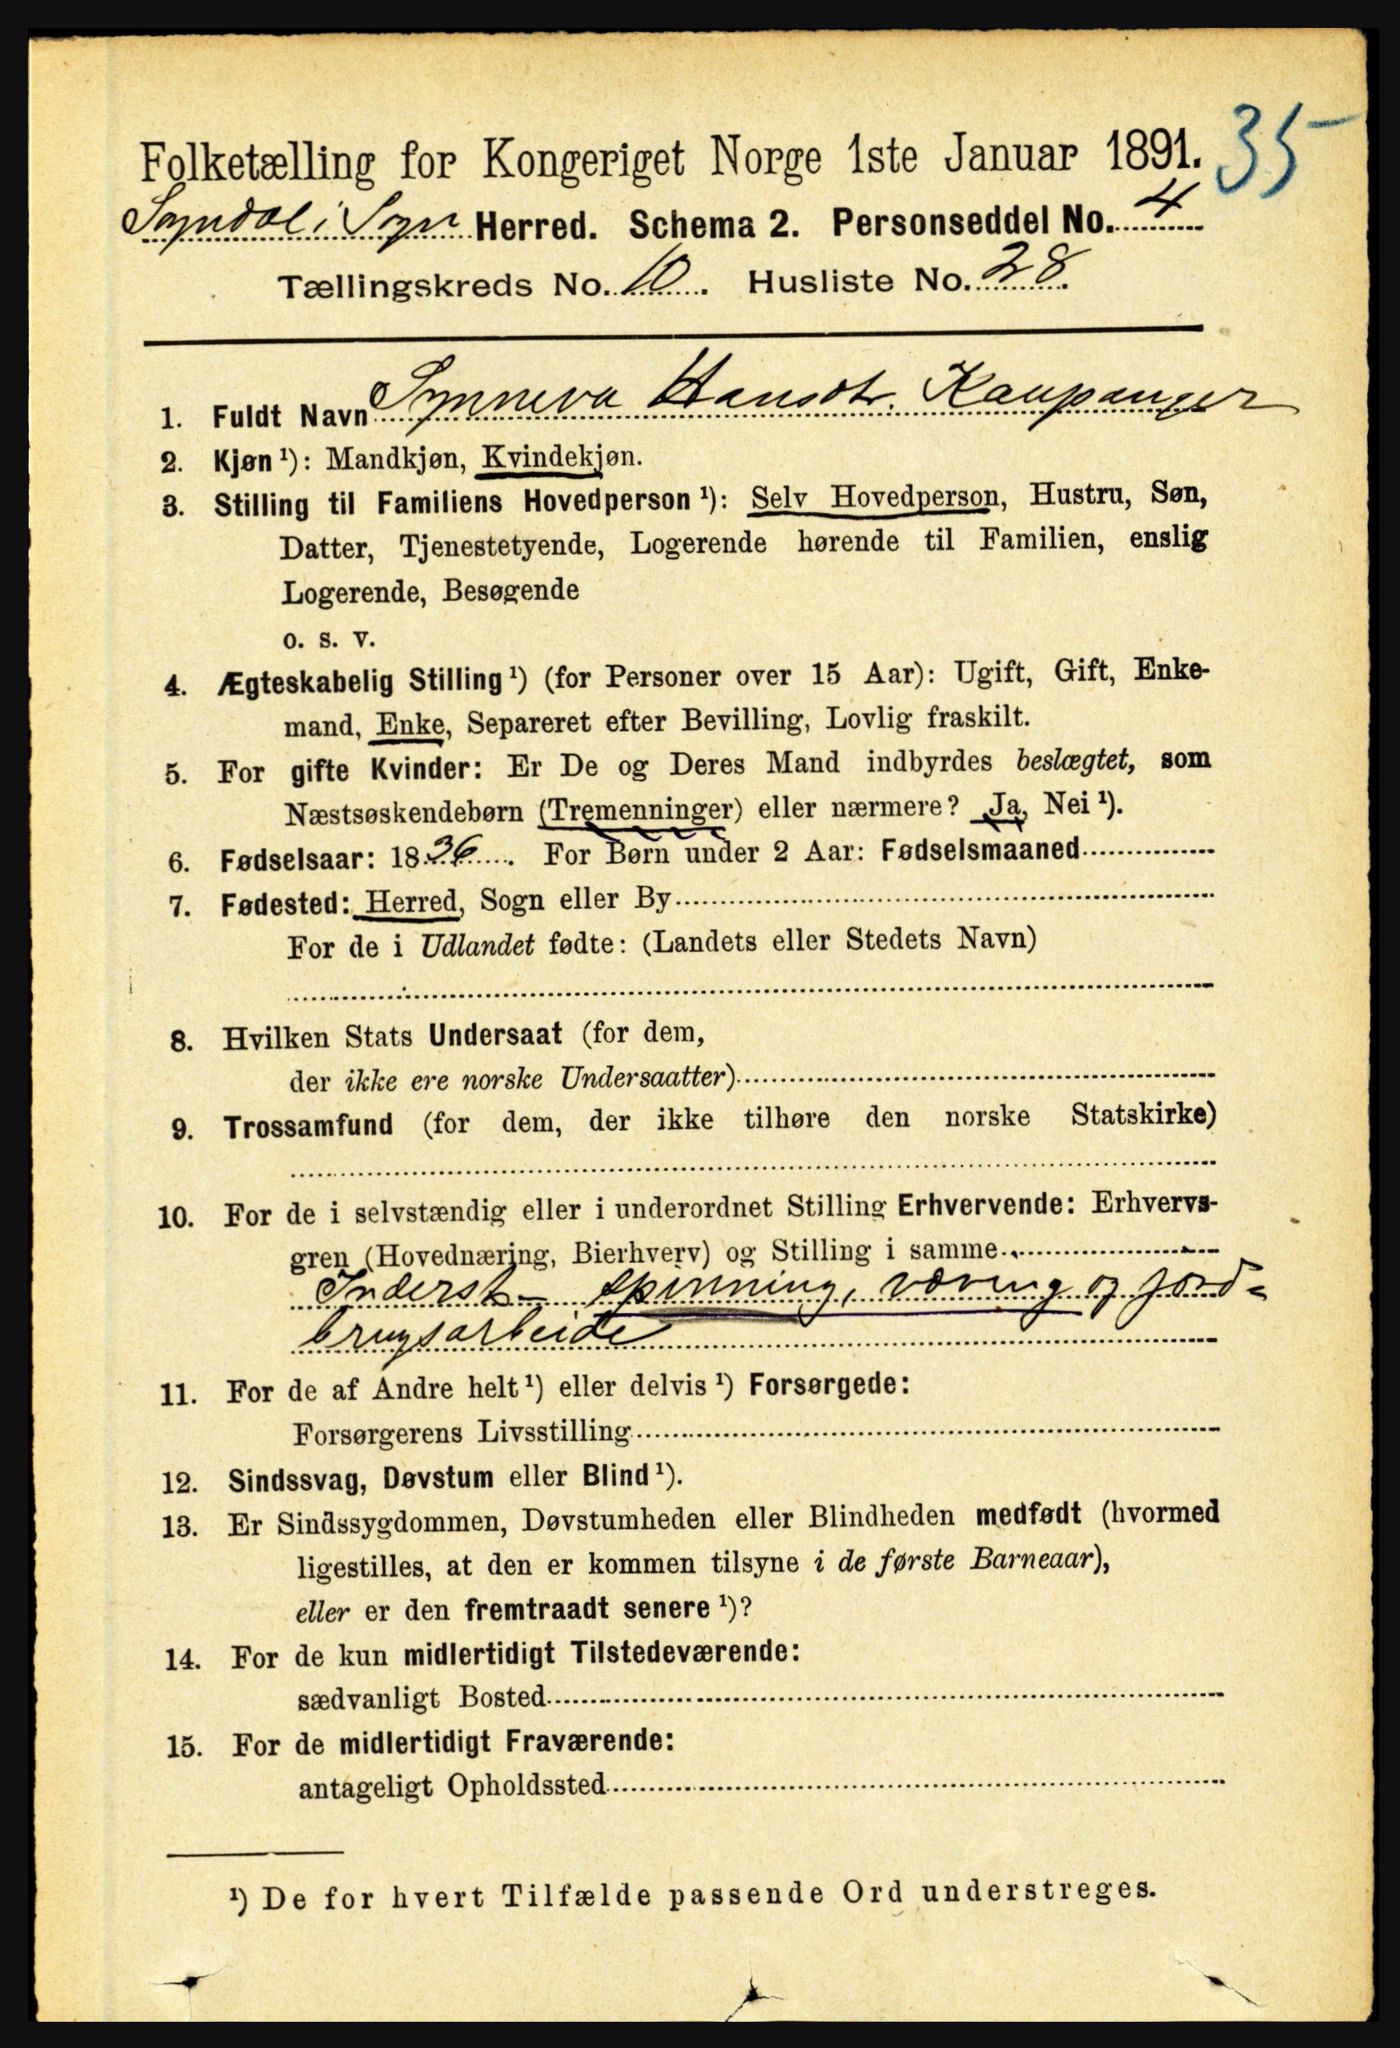 35
Folketælling for Kongeriget Norge 1ste Januar 1891.
Sogndal i Sogn Herred. Schema 2. Personseddel No. 4
Tællingskreds No. 10. Husliste No. 28.
1. Fuldt Navn Synneva Hansdtr. Kaupanger
2. Kjøn ¹): Mandkjøn, Kvindekjøn.
3. Stilling til Familiens Hovedperson ¹): Selv Hovedperson, Hustru, Søn,
Datter, Tjenestetyende, Logerende hørende til Familien, enslig
Logerende, Besøgende
o. s. v.
4. Ægteskabelig Stilling ¹) (for Personer over 15 Aar): Ugift, Gift, Enke-
mand, Enke, Separeret efter Bevilling, Lovlig fraskilt.
5. For gifte Kvinder: Er De og Deres Mand indbyrdes beslægtet, som
Næstsøskendebørn (Tremenninger) eller nærmere? Ja, Nei ¹).
6. Fødselsaar: 1836. For Børn under 2 Aar: Fødselsmaaned
7. Fødested: Herred, Sogn eller By
For de i Udlandet fødte: (Landets eller Stedets Navn)
8. Hvilken Stats Undersaat (for dem,
der ikke ere norske Undersaatter)
9. Trossamfund (for dem, der ikke tilhøre den norske Statskirke)
10. For de i selvstændig eller i underordnet Stilling Erhvervende: Erhvervs-
gren (Hovednæring, Bierhverv) og Stilling i samme
Inderst - spinning, væving og jord-
brugsarbeide
11. For de af Andre helt ¹) eller delvis ¹) Forsørgede:
Forsørgerens Livsstilling
12. Sindssvag, Døvstum eller Blind ¹).
13. Er Sindssygdommen, Døvstumheden eller Blindheden medfødt (hvormed
ligestilles, at den er kommen tilsyne i de første Barneaar),
eller er den fremtraadt senere ¹)?
14. For de kun midlertidigt Tilstedeværende:
sædvanligt Bosted
15. For de midlertidigt Fraværende:
antageligt Opholdssted
¹) De for hvert Tilfælde passende Ord understreges.